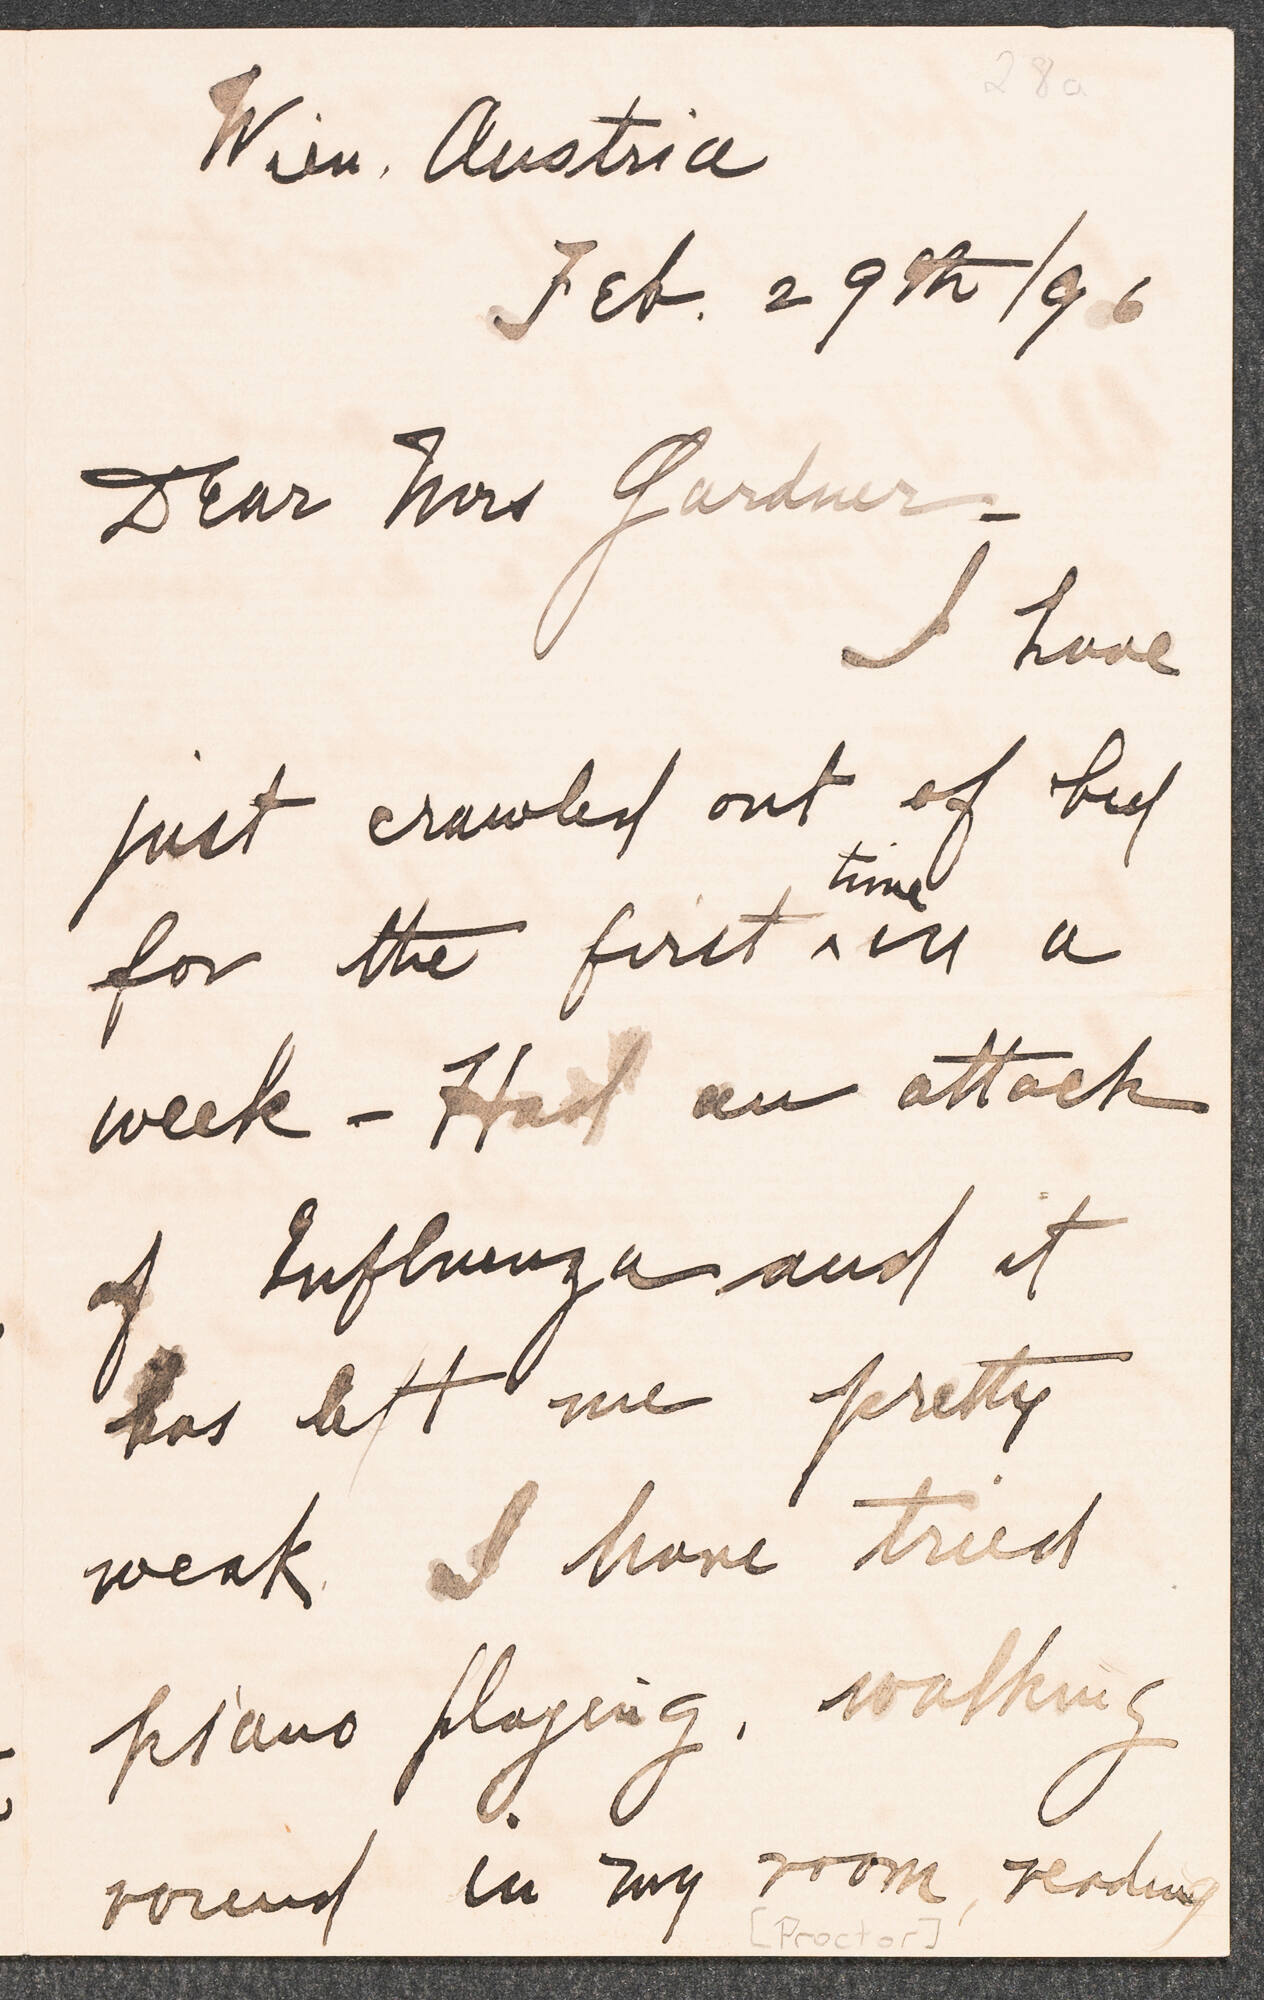 28a
Wien. Austria
Feb. 29th/96
Dear Mrs Gardner-
I have
just crawled out of bed
time
for the first ^ in a
week - Had an attack
of Influenza and it
has left me pretty
weak. I have tried
piano playing, walking
round in my room, reading
[Proctor]